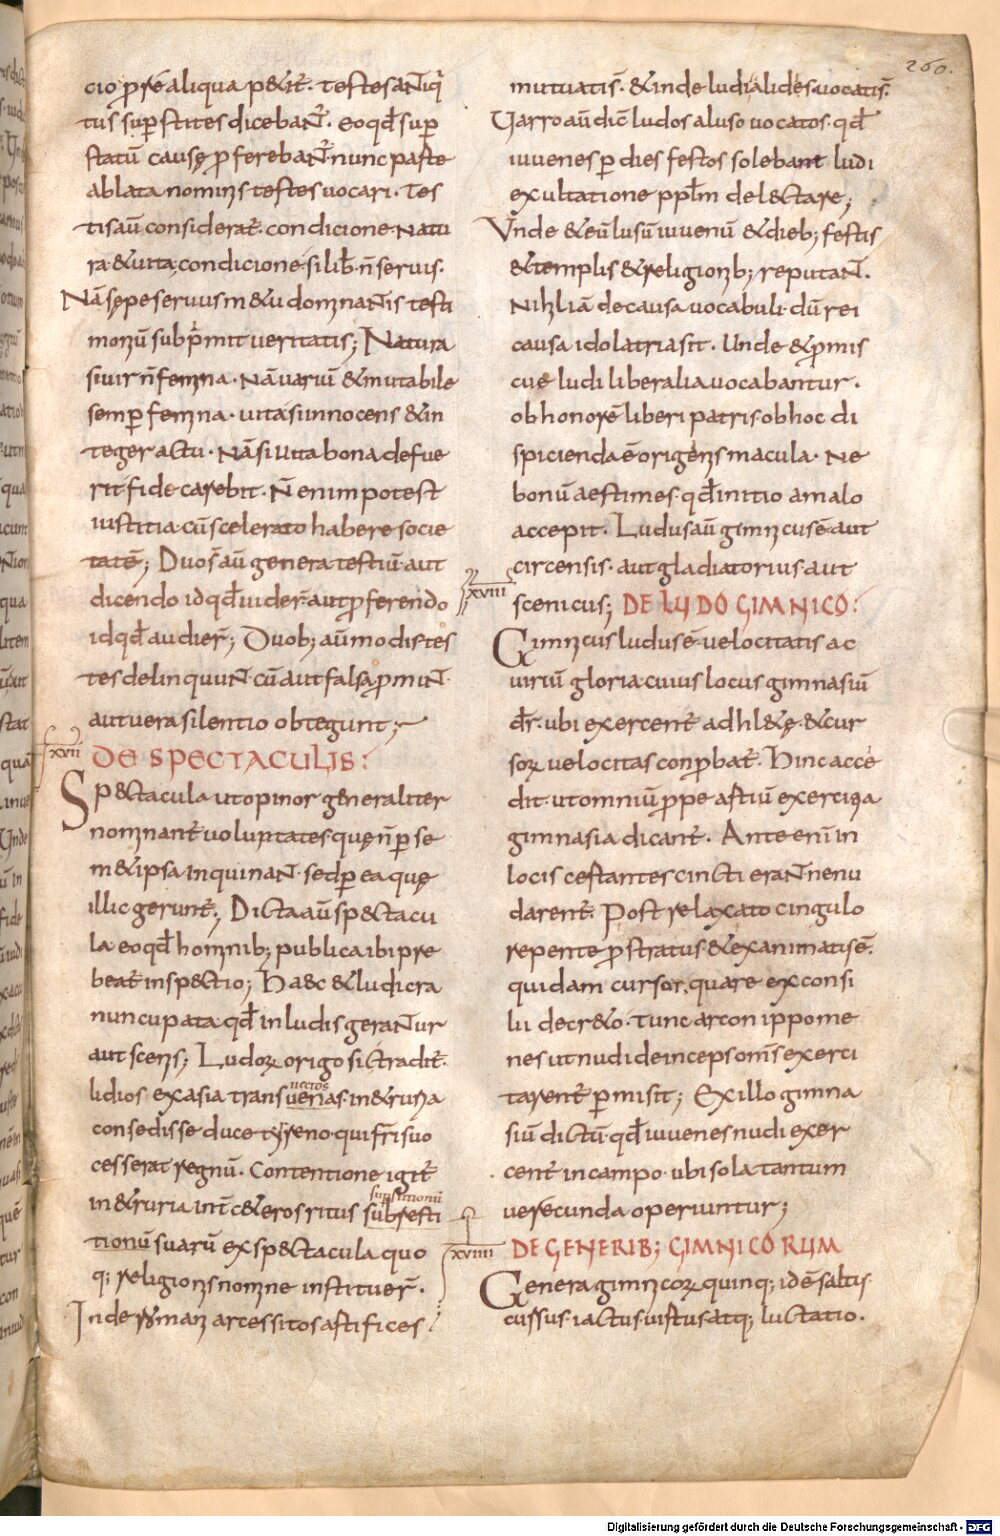 260.
cio p̄rēaliqua p&it̄. testesantiq̇
tus sup̱stites dicebant̄. eoqđsup̱
statū causę p̱ferebant̄nunc parte
ablata nominis testes uocari. Tes
tisaū considerat̄. condicione natu
ra&uita; condicione. siliƀ. n̄seruus.
Nā sępeseruusm&u dominantis testi
moniū subp̄mit ueritatis; Natura
siuir n̄femina. Nāuariū &mutabile
semp̱ femina. uita. siinnocens &in
tegeractu. Nāsiuita bona defue
rit fide carebit. N̄enimpotest
iustitia cūscelerato habere socie
tatē; Duos̄aū genera testiū. aut
dicendo idqđuider̄. autp̱ferendo
idqđaudier̄; Duob; aūmodis tes
tes delinquunt̄. cūaut falsap̱munt̄.
autuera silentio obtegunt;
xvii
DE SPECTACULIS:
Sp&tacula utopinor generaliter
nominant̄ uoluptates quęn̄p̱ se
m&ipsa inquinant̄. sedp̱ eaquę
illic gerunt̄; Dictaaū sp&tacu
la eoqđ hominib; publica ibi pre
beat̄ insp&tio; Haec &ludicra
nuncupata qđ inludis gerantur
aut scenis; Ludoꝝ origo sic tradit̄.
lidios exasia trans uenas in&rusia
uectos
consedisse duce tyrreno qui fr̄i suo
cesserat regnū. Contentione igit̄
in&ruria int̄ c&eros ritus subresti
supstitionū
tionū suarū exsp&tacula quo
q; religionis nomine instituer̄.
Inde romani arcessitos artifices
mutuatis̄. &inde ludialidis̄ uocatis̄.
Uarro aū dic̄ ludos aluso uocatos. qđ
iuuenes p̱ dies festos solebant ludi
exultatione ppl̄m del&tare;
Unde &eū lusū iuuenū &dieb; festis
&templis &religionib; reputant̄.
Nihliā decausa uocabuli. dū rei
causa idolatria sit. Unde &p̱mis
cuę ludi liberalia uocabantur.
ob honorē liberi patris. obhoc di
spicienda ē originis macula. Ne
bonū aestimes. qđ initio amalo
accepit. Ludus aū gimnicus ē aut
circensis. aut gladiatorius aut
xviii
scenicus; DE LUDO GIMNICO:
Gimnicus ludus ē. uelocitatis ac
uiriū gloria. cuius locus gimnasiū
dr̄. ubi exercent̄ adhl&ę. &cur
soꝝ uelocitas conp̱bat̄. Hinc accę
dit. ut omniū p̱pe artiū exercitia
gimnasia dicant̄. Ante enī in
locis certantes cincti erant̄ nenu
darent̄. Post relaxato cingulo
repente p̱stratus &exanimatus ē.
quidam cursor, quare exconsi
lii decr&o. tunc arcon ippome
nes ut nudi deinceps om̄s exerci
tarent̄ p̱misit; Exillo gimna
siū dictū qđ iuuenes nudi exer
cent̄ in campo. ubi sola tantum
uerecunda operiuntur;
xviiii
DE GENERIB; GIMNICORUM
Genera gimnicoꝝ quinq; idē saltus
cursus. iactus. uirtus. atq; luctatio.
Digitalisierung gefördert durch die Deutsche Forschungsgemeinschaft - DFG